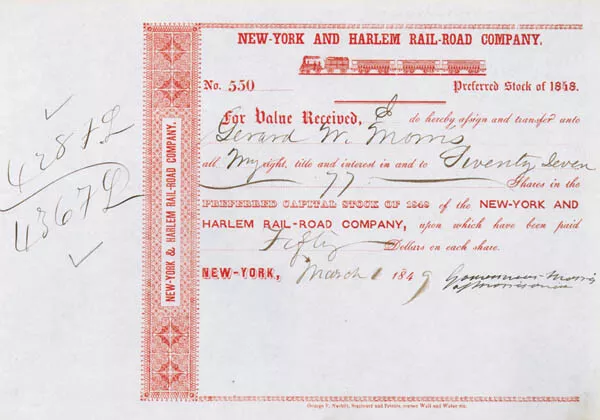 NEW-YORK AND HARLEM RAIL-ROAD COMPANY.
No. 550 Preferred Stock of 1848.
For Value Received, I do hereby assign and transfer unto
Gerard W. Morris
all My right, title and interest in and to Seventy Seven
77 Shares in the
PREFERRED CAPITAL STOCK OF 1848 of the NEW-YORK AND
HARLEM RAIL-ROAD COMPANY, upon which have been paid
Fifty Dollars on each share.
NEW-YORK, March 1 1849 Gouverneur Morris
of Morrisania
NEW-YORK & HARLEM RAIL-ROAD COMPANY.
4287L
4367L
George F. Nesbitt, Stationer and Printer, corner Wall and Water sts.